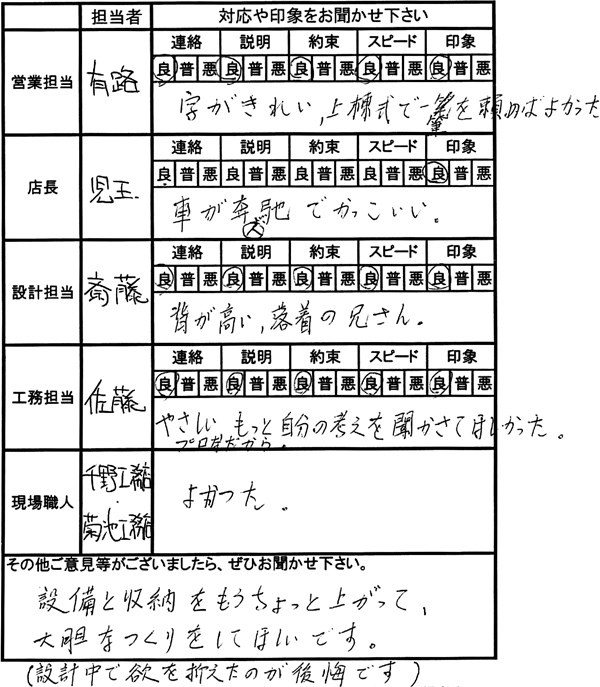 担当者 対応や印象をお聞かせ下さい
営業担当 有路
連絡 説明 約束 スピード 印象
良 普 悪 良 普 悪 良 普 悪 良 普 悪 良 普 悪
字がきれい,上棟式で一筆を頼めばよかった
店長 児玉.
連絡 説明 約束 スピード 印象
良 普 悪 良 普 悪 良 普 悪 良 普 悪 良 普 悪
車が奔馳でかっこいい。
設計担当 斎藤
連絡 説明 約束 スピード 印象
良 普 悪 良 普 悪 良 普 悪 良 普 悪 良 普 悪
背が高い,落着の兄さん。
工務担当 佐藤
連絡 説明 約束 スピード 印象
良 普 悪 良 普 悪 良 普 悪 良 普 悪 良 普 悪
やさしい もっと自分の考えを聞かさてほしかった。
プロだから。
現場職人 千野工務店
・
菊池工務店
よかった。
その他ご意見等がございましたら、ぜひお聞かせ下さい。
設備と収納をもうちょっと上がって,
大胆なつくりをしてほしいです。
(設計中で欲を抑えたのが後悔です)